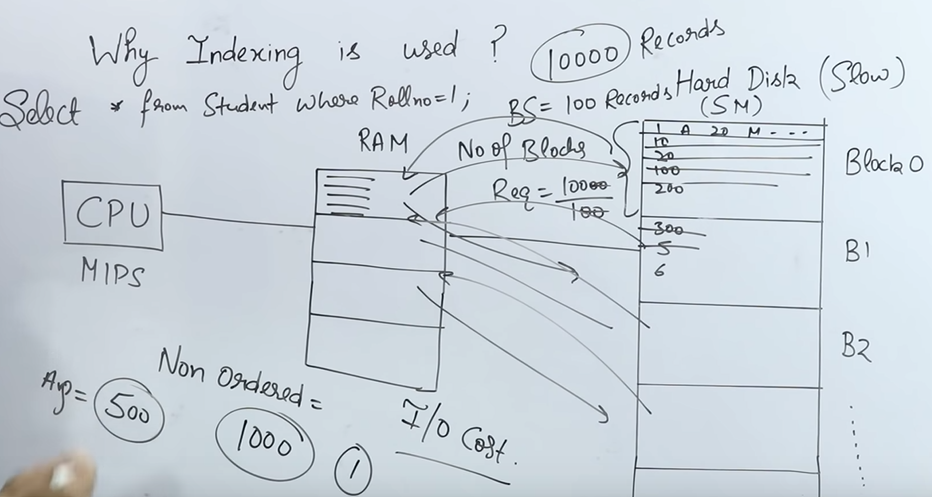 Why Indexing is used ? 10000 Records
Select * from Student where Rollno=1;
BS = 100 Records
Hard Disk (Slow)
(SM)
RAM
No of Blocks
Req = 10000
100
CPU
MIPS
1 A 20 M - - -
10
20
100
200
Block 0
300
5
6
B1
B2
Non Ordered =
1000
1
I/O Cost.
500